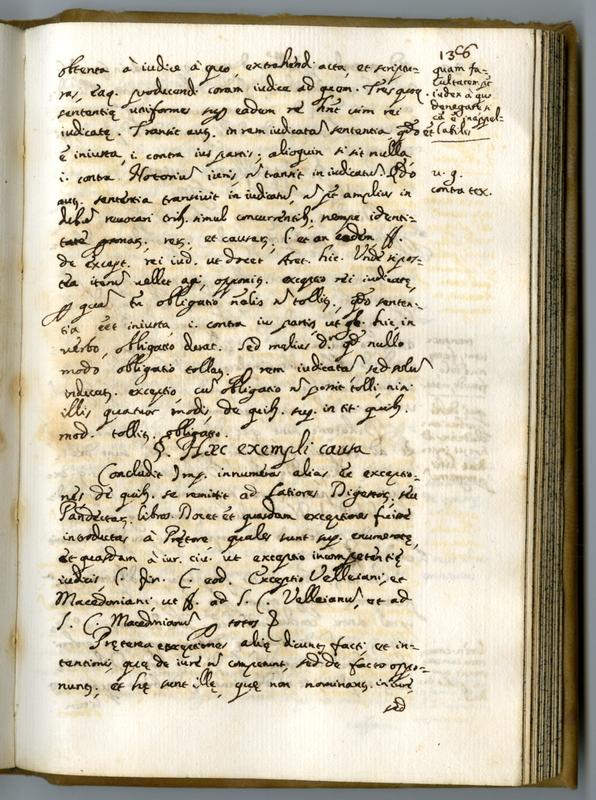 136
obtenta à iudice à quo, extrahendi acta, et scriptu-
ras, eaq. producendi coram iudice ad quem. Tres quoq.
sententię uniformes sup. eadem re hñt vim rei
iudicatę. Transit aut. in rem iudicatã sententia qdo et
ẽ iniusta, i. contra ius partis, alioquin si sit nulla,
i. contra Notoriũ iuris, ñ transit in iudicatũ. Qdo
aut. sententia transivit in iudicatũ, ñ pt amplius in
revocari simul concurrentib. nempe identi-
tate rei, et causę, l. et an eadem ff.
de except. rei iud. ut docet Aret. hic. Unde si pos-
tea iterũ vellet agi, opponit. exceptio rei iudicatę,
p quã tñ obligatio ñalis ñ tollit. qdo senten-
tia eẽt iniusta, i. contra ius partis, ut hic in
verbo, obligatio durat. Sed melius qd nullo
modo obligatio tollat. rem iudicatã sed solũ
exceptio, cũ obligatio ñ possit tolli nisi
illis quatuor modis, de quib. sup. in tit. quib.
mod. tollit. obligatio.
§. Hæc exempli causa
Concludit Imp. innumeras alias ẽe exceptio-
nes de quib. se remittit ad latiores Digestor. seu
Pandectar. libros. Docet et quasdam exceptiones fuisse
introductas à Prętore, quales sunt sup. enumeratę,
et quasdam à iur. civ. ut exceptio incompetentię
iudicis l. fin. C. eod. Exceptio Velleiani, et
Macedoniani ut ff. ad S. C. Velleianũ, et ad
S. C. Macedonianũ p totos
Pręterea exceptiones alię dicunt. facti et in-
tentionis, quę de iure ñ competunt, sed de facto oppo-
nunt. et hę sunt illę, quę non nominant. in iure,
sed
quam fa-
cultatem pt
iudex à quo
denegare si
cã ẽ inappel-
labilis
v. g.
contra tex.